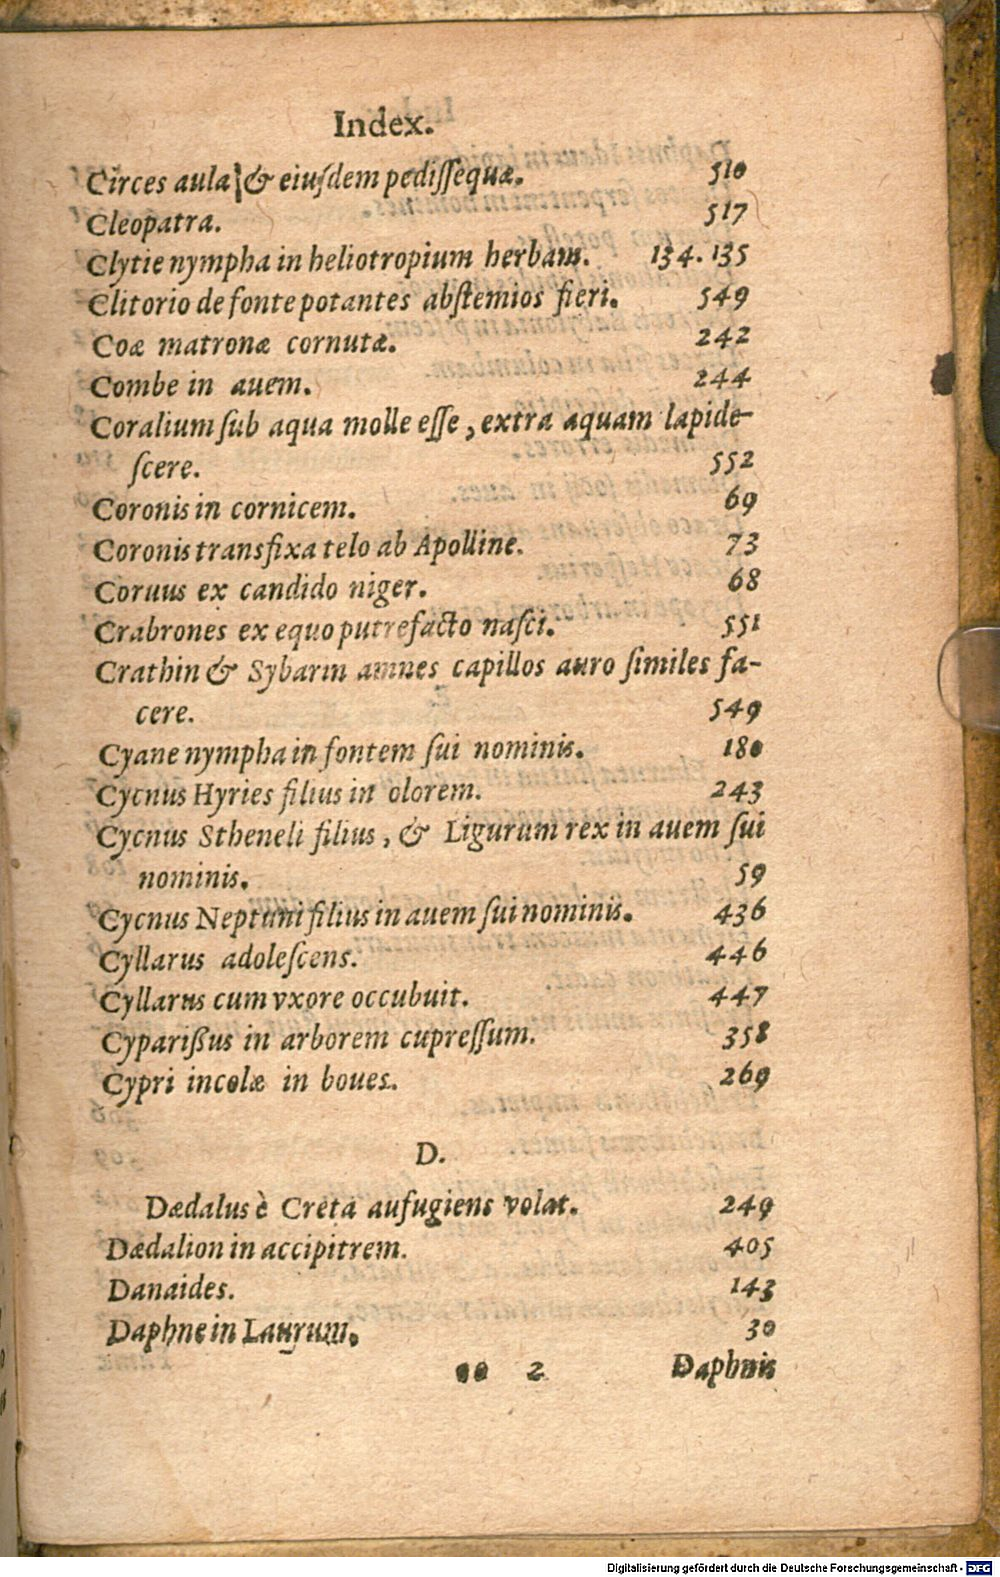 Index.
Circes aula & eiuſdem pediſſequæ. 510
Cleopatra. 517
Clytie nympha in heliotropium herbam. 134. 135
Clitorio de fonte potantes abſtemios fieri. 549
Coæ matronæ cornutæ. 242
Combe in auem. 244
Coralium ſub aqua molle eſſe, extra aquam lapide-
ſcere. 552
Coronis in cornicem. 69
Coronis transfixa telo ab Apolline. 73
Coruus ex candido niger. 68
Crabrones ex equo putrefacto naſci. 551
Crathin & Sybarin amnes capillos auro ſimiles fa-
cere. 549
Cyane nympha in fontem ſui nominis. 180
Cycnus Hyries filius in olorem. 243
Cycnus Stheneli filius, & Ligurum rex in auem ſui
nominis. 59
Cycnus Neptuni filius in auem ſui nominis. 436
Cyllarus adoleſcens. 446
Cyllarus cum vxore occubuit. 447
Cypariſſus in arborem cupreſſum. 358
Cypri incolæ in boues. 269
D.
Dædalus è Creta aufugiens volat. 249
Dædalion in accipitrem. 405
Danaides. 143
Daphne in Laurum. 30
oo 2 Daphnis
Digitalisierung gefördert durch die Deutsche Forschungsgemeinschaft - DFG